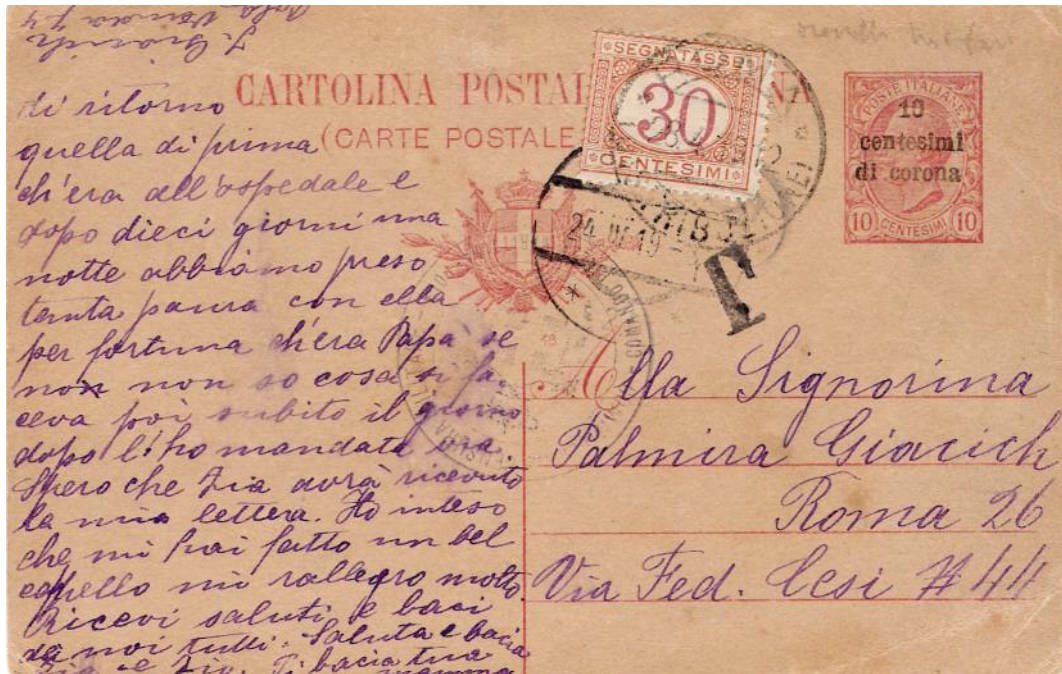 CARTOLINA POSTA
(CARTE POSTALE
SEGNATASSE
30
CENTESIMI
POSTE ITALIANE
10
centesimi
di corona
10 CENTESIMI 10
24 IV 19
T
COMANDO
di ritorno
quella di prima
ch'era all'ospedale e
dopo dieci giorni una
notte abbiamo preso
tanta paura con ella
per fortuna ch'era Papa se
non non so cosa si fa
ceva poi subito il giorno
dopo l'ho mandata via
Spero che Zia avrà ricevuto
la mia lettera. Ho inteso
che mi hai fatto un bel
capello mi rallegro molto.
Ricevi saluti e baci
da noi tutti. Saluta e bacia
Zia e Zio. Ti bacia tua
mamma
Alla Signorina
Palmira Giacich
Roma 26
Via Fed. Cesi # 44